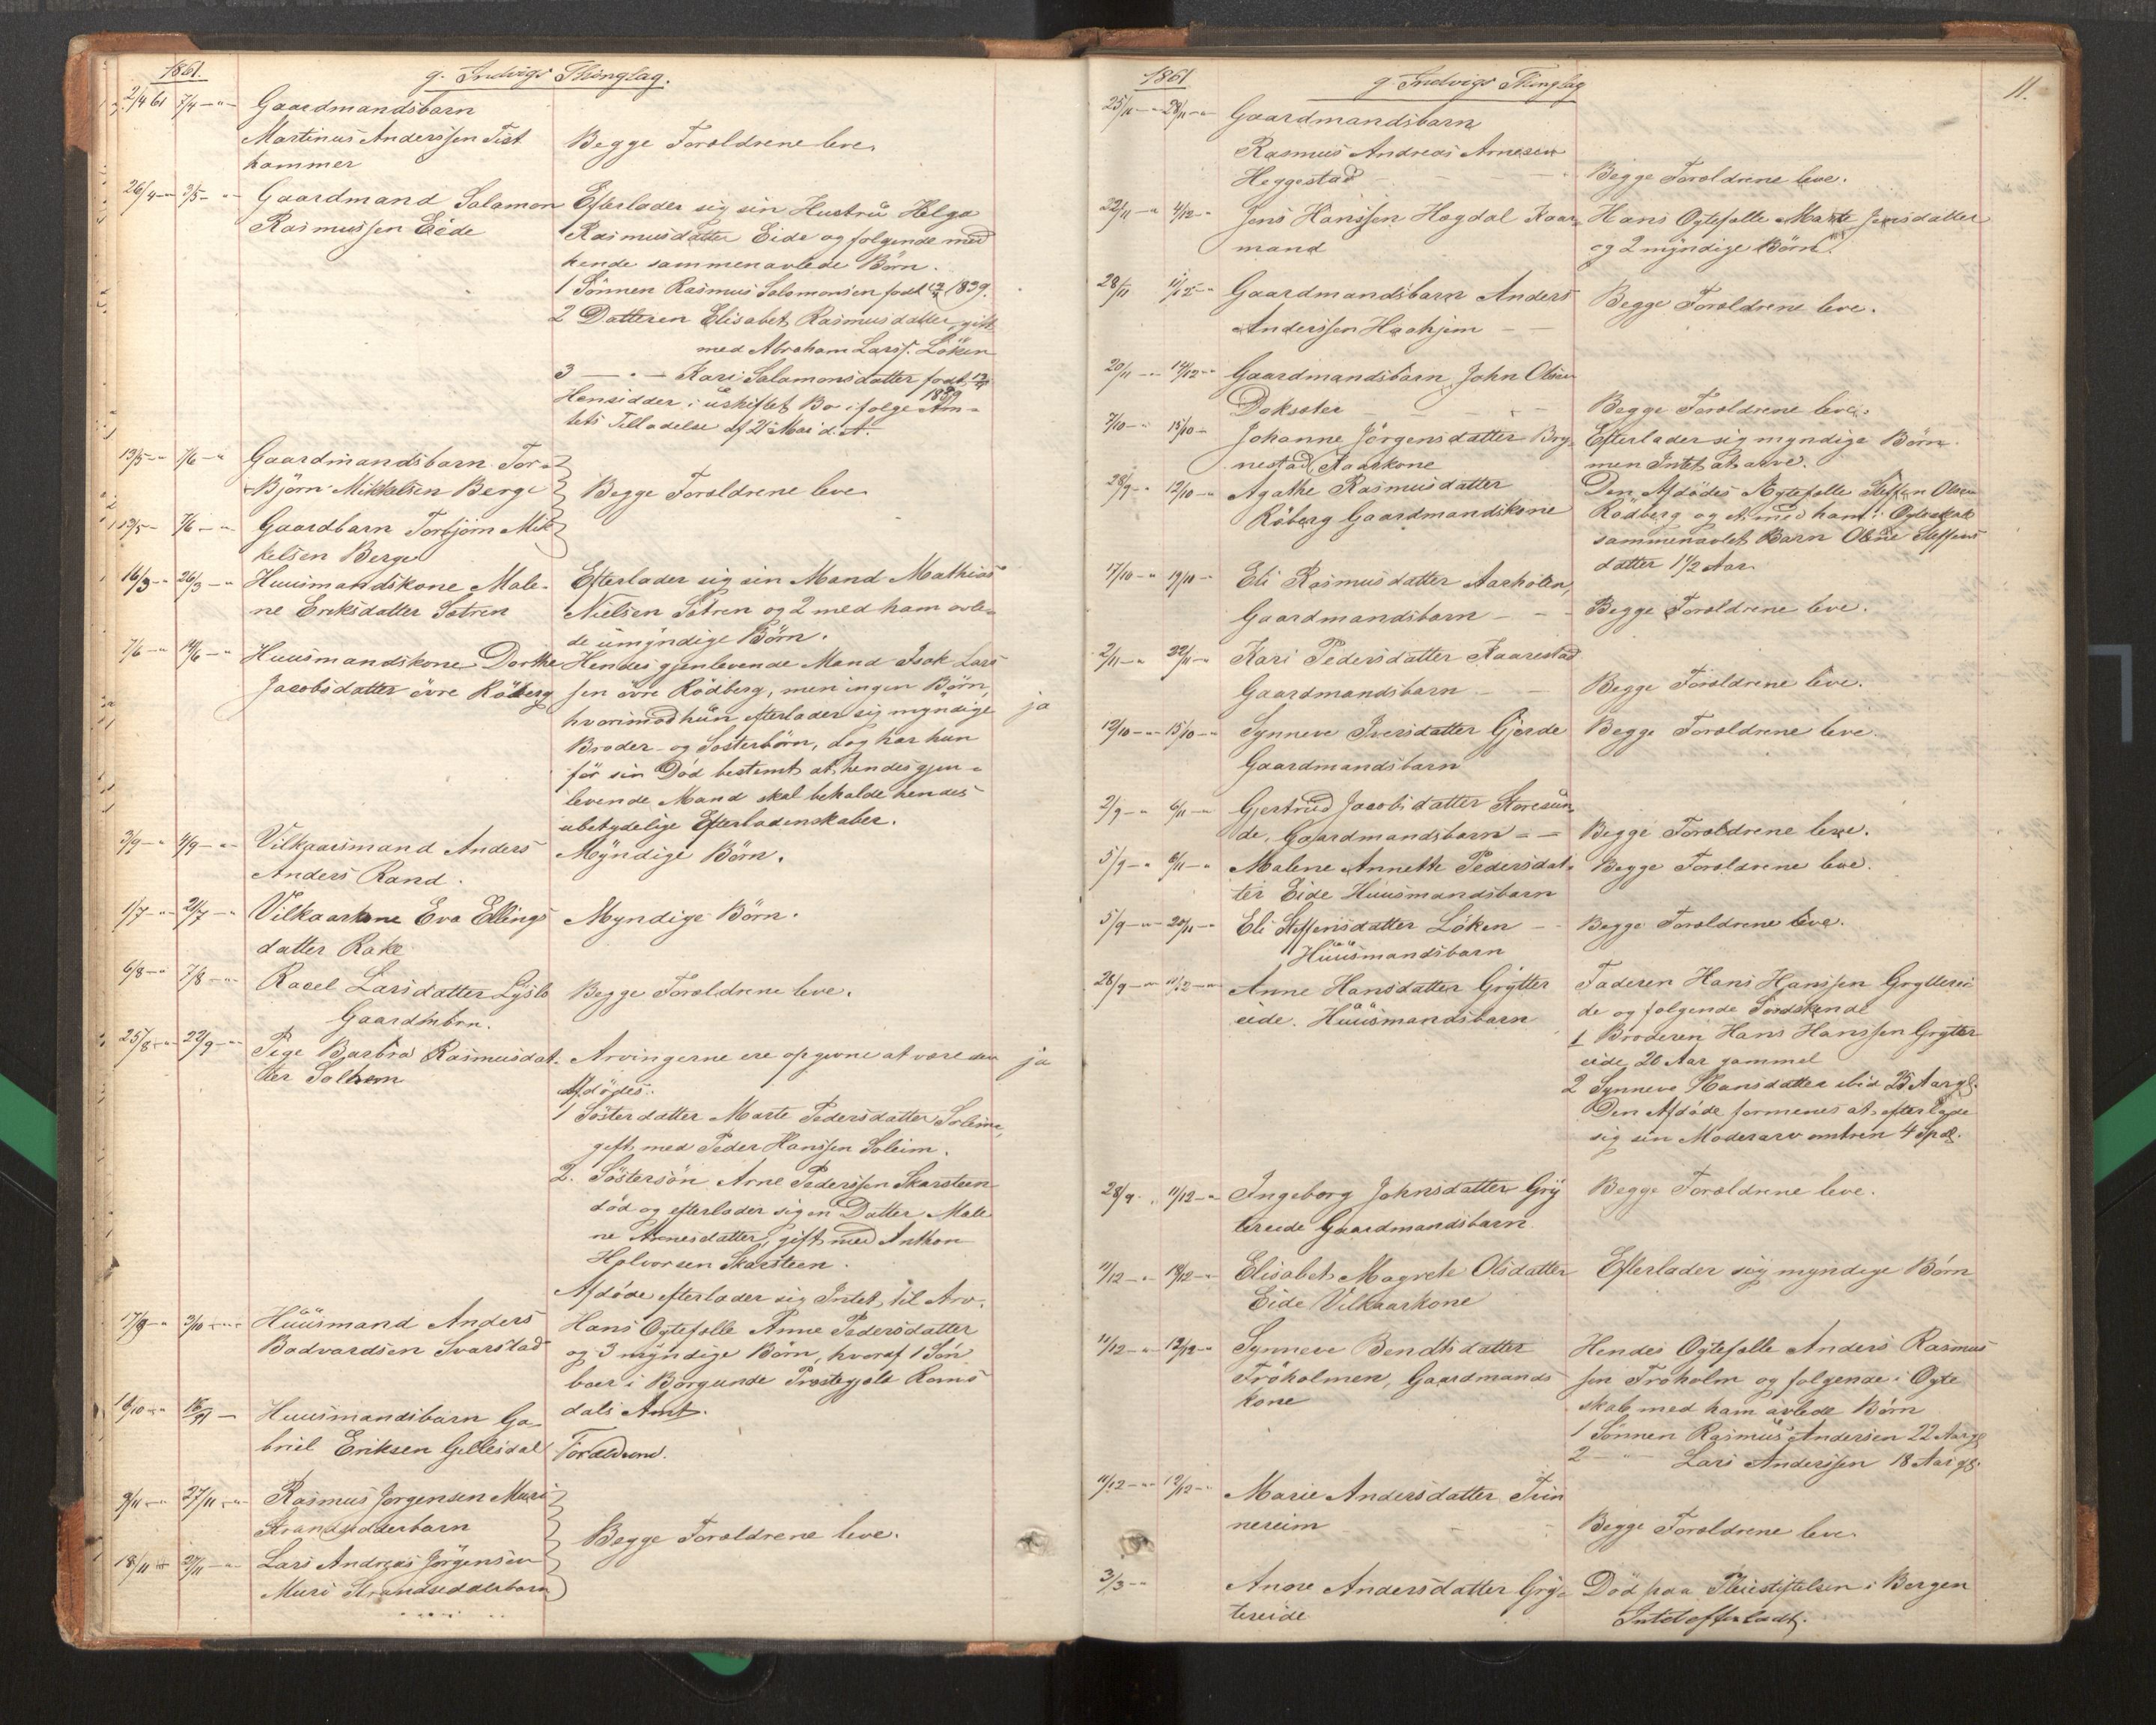 1861.
g. Indvigs Thinglag.
2/4 61 7/4 -"- Gaardmandsbarn
Martinus Anderssen Tist Begge Forældrene leve.
hammer
26/4 -"- 3/5 -"- Gaardmand Salamon Efterlader sig sin Hustru Helga
Rasmussen Eide Rasmusdatter Eide og følgende med
hende sammenavlede Börn.
1 Sönnen Rasmus Salomonsen født 1839.
2 Datteren Elisabet Rasmusdatter, gift
med Abraham Larss. Löken
3 -"- Kari Salamonsdatter født
Hensidder i uskiftet Bo ifølge Am-
tets Tilladelse af 21 Mai d. A.
13/5 -"- 7/6 -" Gaardmandsbarn Tor-
Björn Mikkelsen Berge Begge Forældrene leve
13/5 - 7/6 -"- Gaardbarn Torbjörn Mik
kelsen Berge
16/3 -" 26/3 -" Huusmandskone Male- Efterlader sig sin Mand Mathias
ne Eriksdatter Sætren Nielsen Sætren og 2 med ham avle-
de umÿndige Börn.
7/6 -" 14/6 -" Huusmandskone Dorthe Hendes gjenlevende Mand Isak Lars
Jacobsdatter övre Röberg sen övre Rödberg, men ingen Börn, ja
hvorimod hun efterlader sig myndige
Broder- og Sösterbörn, dog har hun
för sin Död bestemt at hendes gjen-
levende Mand skal beholde hendes
ubetydelige Efterladenskaber.
3/9 -" 4/9 -" Vilkaarsmand Anders Mÿndige Börn.
Anders Rand.
1/7 -"- 21/7 -" Vilkaarkone Eva Ellings Myndige Börn.
datter Rake
6/8 -" 7/8 -"- Racel Larsdatter Lÿslo Begge Forældrene leve.
Gaardmbrn.
25/8 -"- 22/9 -"- Pige Barbra Rasmusdat- Arvingerne ere opgivne at være den ja
ter Solhem Afdödes:
1 Sösterdatter Marte Pedersdatter Soleim,
gift med Peder Hanssen Soleim.
2. Söstersön Arne Pederssen Skarsteen
död og efterlader sig en Datter Male
ne Arnesdatter, gift med Anthon
Halvorsen Skarsteen.
Afdöde efterlader sig Intet til Arv.
17/9 -" 3/10 -"- Hüüsmand Anders Hans Ægtefælle Anne Pedersdatter
Bodvardsen Svarstad og 3 mÿndige Börn, hvoraf 1 Sön
boer i Borgunde Præstegjeld Roms
dals Amt.
16/10 -" Huusmandsbarn Ga-
briel Eriksen Gillesdal Forældrene.
9/11 -"- 27/11 -"- Rasmus Jørgensen Muri
Strandsidderbarn Begge Forældrene leve.
18/11 -"- 27/11 -"- Lars Andreas Jörgensen
Muri Strandsidderbarn
1861
g. Indvigs Thinglag
11.
25/11 -"- 28/11 -"- Gaardmandsbarn
Rasmus Andreas Arnesen
Heggestad - - - Begge Forældrene leve.
22/11 -" 4/12 -" Jens Hanssen Hogdal Kaar- Hans Ægtefælle Marte Jensdatter
mand og 2 mÿndige Börn.
28/11 11/12 -" Gaardmandsbarn Anders Begge Forældrene leve.
Anderssen Haahjem - -
20/11 -"- 14/12 -" Gaardmandsbarn John Olsen
Doksæter - - - Begge Forældrene leve.
7/10 -" 15/10 -" Johanne Jörgensdatter Bry- Efterlader sig myndige Börn
nestad Kaarkone men Intet at arve.
28/9 -" 12/10 -" Agathe Rasmusdatter Den Afdödes Ægtefælle Steffen Olsen
Röberg Gaardmandskone Rödberg og et med ham i Ægteskab
sammenavlet Barn Oline Steffens
datter 1½ Aar.
17/10 -" 19/10 -" Eli Rasmusdatter Aarholen,
Gaardmandsbarn - - Begge Forældrene leve.
2/11 -" 22/11 -" Kari Pedersdatter Kaarestad
Gaardmandsbarn - - Begge Forældrene leve.
12/10 -"- 15/10 -" Synneve Iversdatter Gjerde Begge Forældrene leve
Gaardmandsbarn
2/9 -" 6/11 -" Gjertrud Jacobsdatter Storesün
de, Gaardmandsbarn - - Begge Forældrene leve.
5/9 -" 6/11 -" Malene Annette Pedersdat- Begge Forældrene leve.
ter Eide Huusmandsbarn
5/9 -"- 20/11 -" Eli Steffensdatter Löken - - Begge Forældrene leve.
Hüüsmandsbarn
28/9 -"- 11/12 -"- Anne Hansdatter Grÿtter Faderen Hans Hanssen Gryttereí
eide. Hüüsmandsbarn de og følgende Södskende
1 Broderen Hans Hanssen Grÿtter
eide 20 Aar gammel
2 Synneve Hansdatter ibid 25 Aar gl.
Den Afdöde formenes at efterlade
sig sin Moderarv omtren 4 Spd.
28/9 -" 11/12 -" Ingeborg Johnsdatter Grÿ Begge Forældrene leve.
tereide Gaardmandsbarn
11/12 -" 18/12 -" Elisabet Magrete Olsdatter Efterlader sig myndige Börn
Eide Vilkaarkone
11/12 -" 12/12 -" Synneve Bendtsdatter Hendes Ægtefælle Anders Rasmus
Fröholmen, Gaardmands sen Fröholm og følgende i Ægte
kone skab med ham avlede Börn
1 Sönnen Rasmus Andersen 22 Aar gl
2 -"- Lars Anderssen 18 Aar gl.
11/12 -"- 12/12 -" Marie Andersdatter Tvin
nereim - - Begge Forældrene leve
3/3 -" Anne Andersdatter Grÿ- Död paa Pleiestiftelsen i Bergen
tereide Intet efterladt.